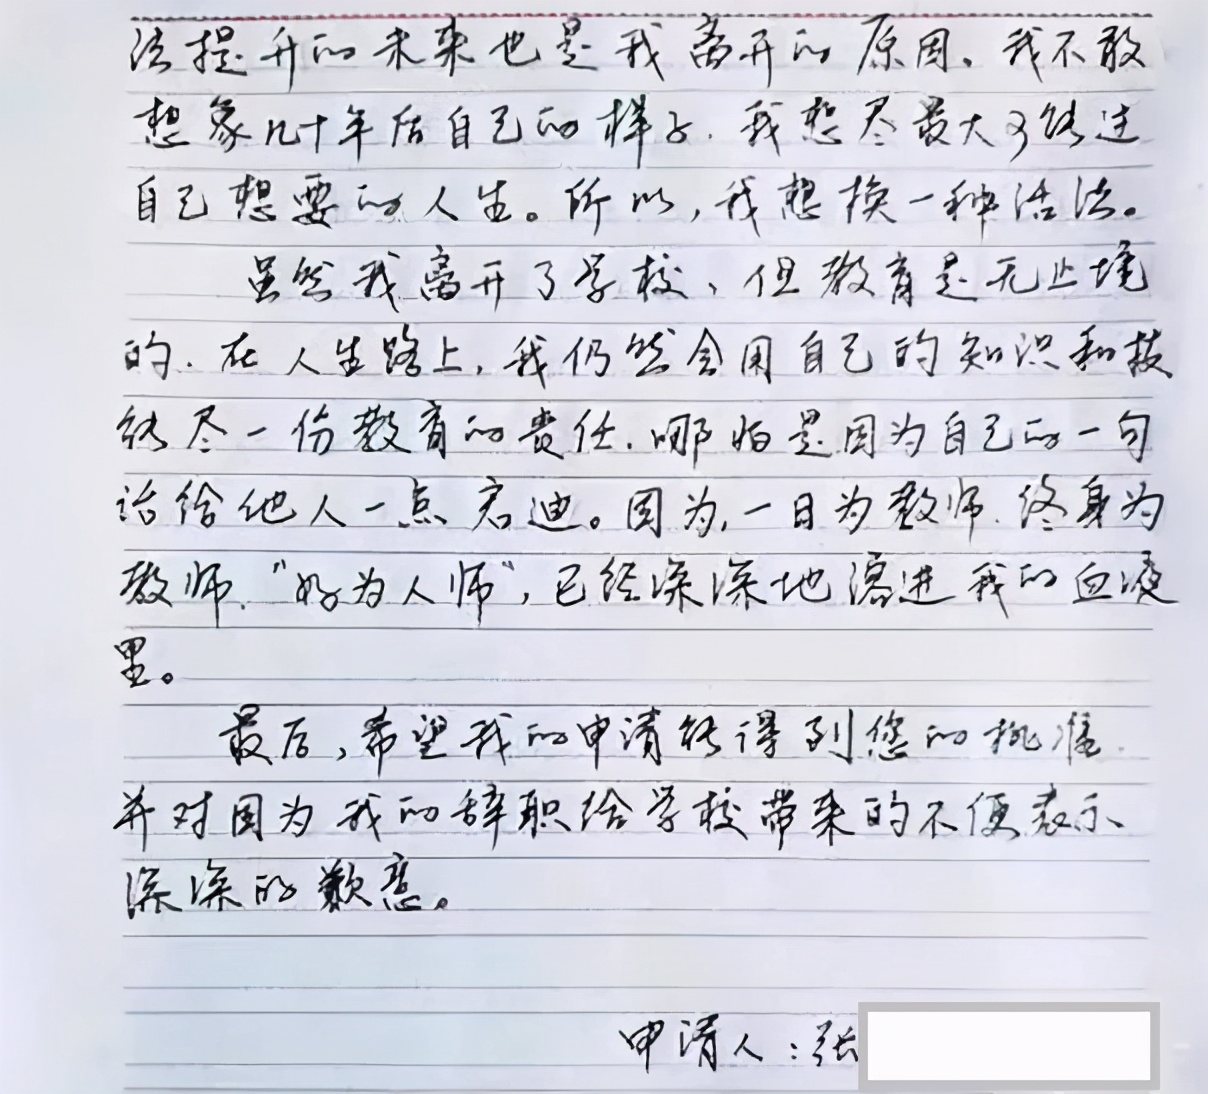 法提升的未来也是我离开的原因。我不敢
想象几十年后自己的样子。我想尽最大可能过
自己想要的人生。所以,我想换一种活法。
虽然我离开了学校,但教育是无止境
的。在人生路上,我仍然会用自己的知识和技
能尽一份教育的责任.哪怕是因为自己的一句
话给他人一点启迪。因为,一日为教师.终身为
教师."好为人师",已经深深地溶进我的血液
里。
最后,希望我的申请能得到您的批准.
并对因为我的辞职给学校带来的不便表示
深深的歉意。
申请人:张